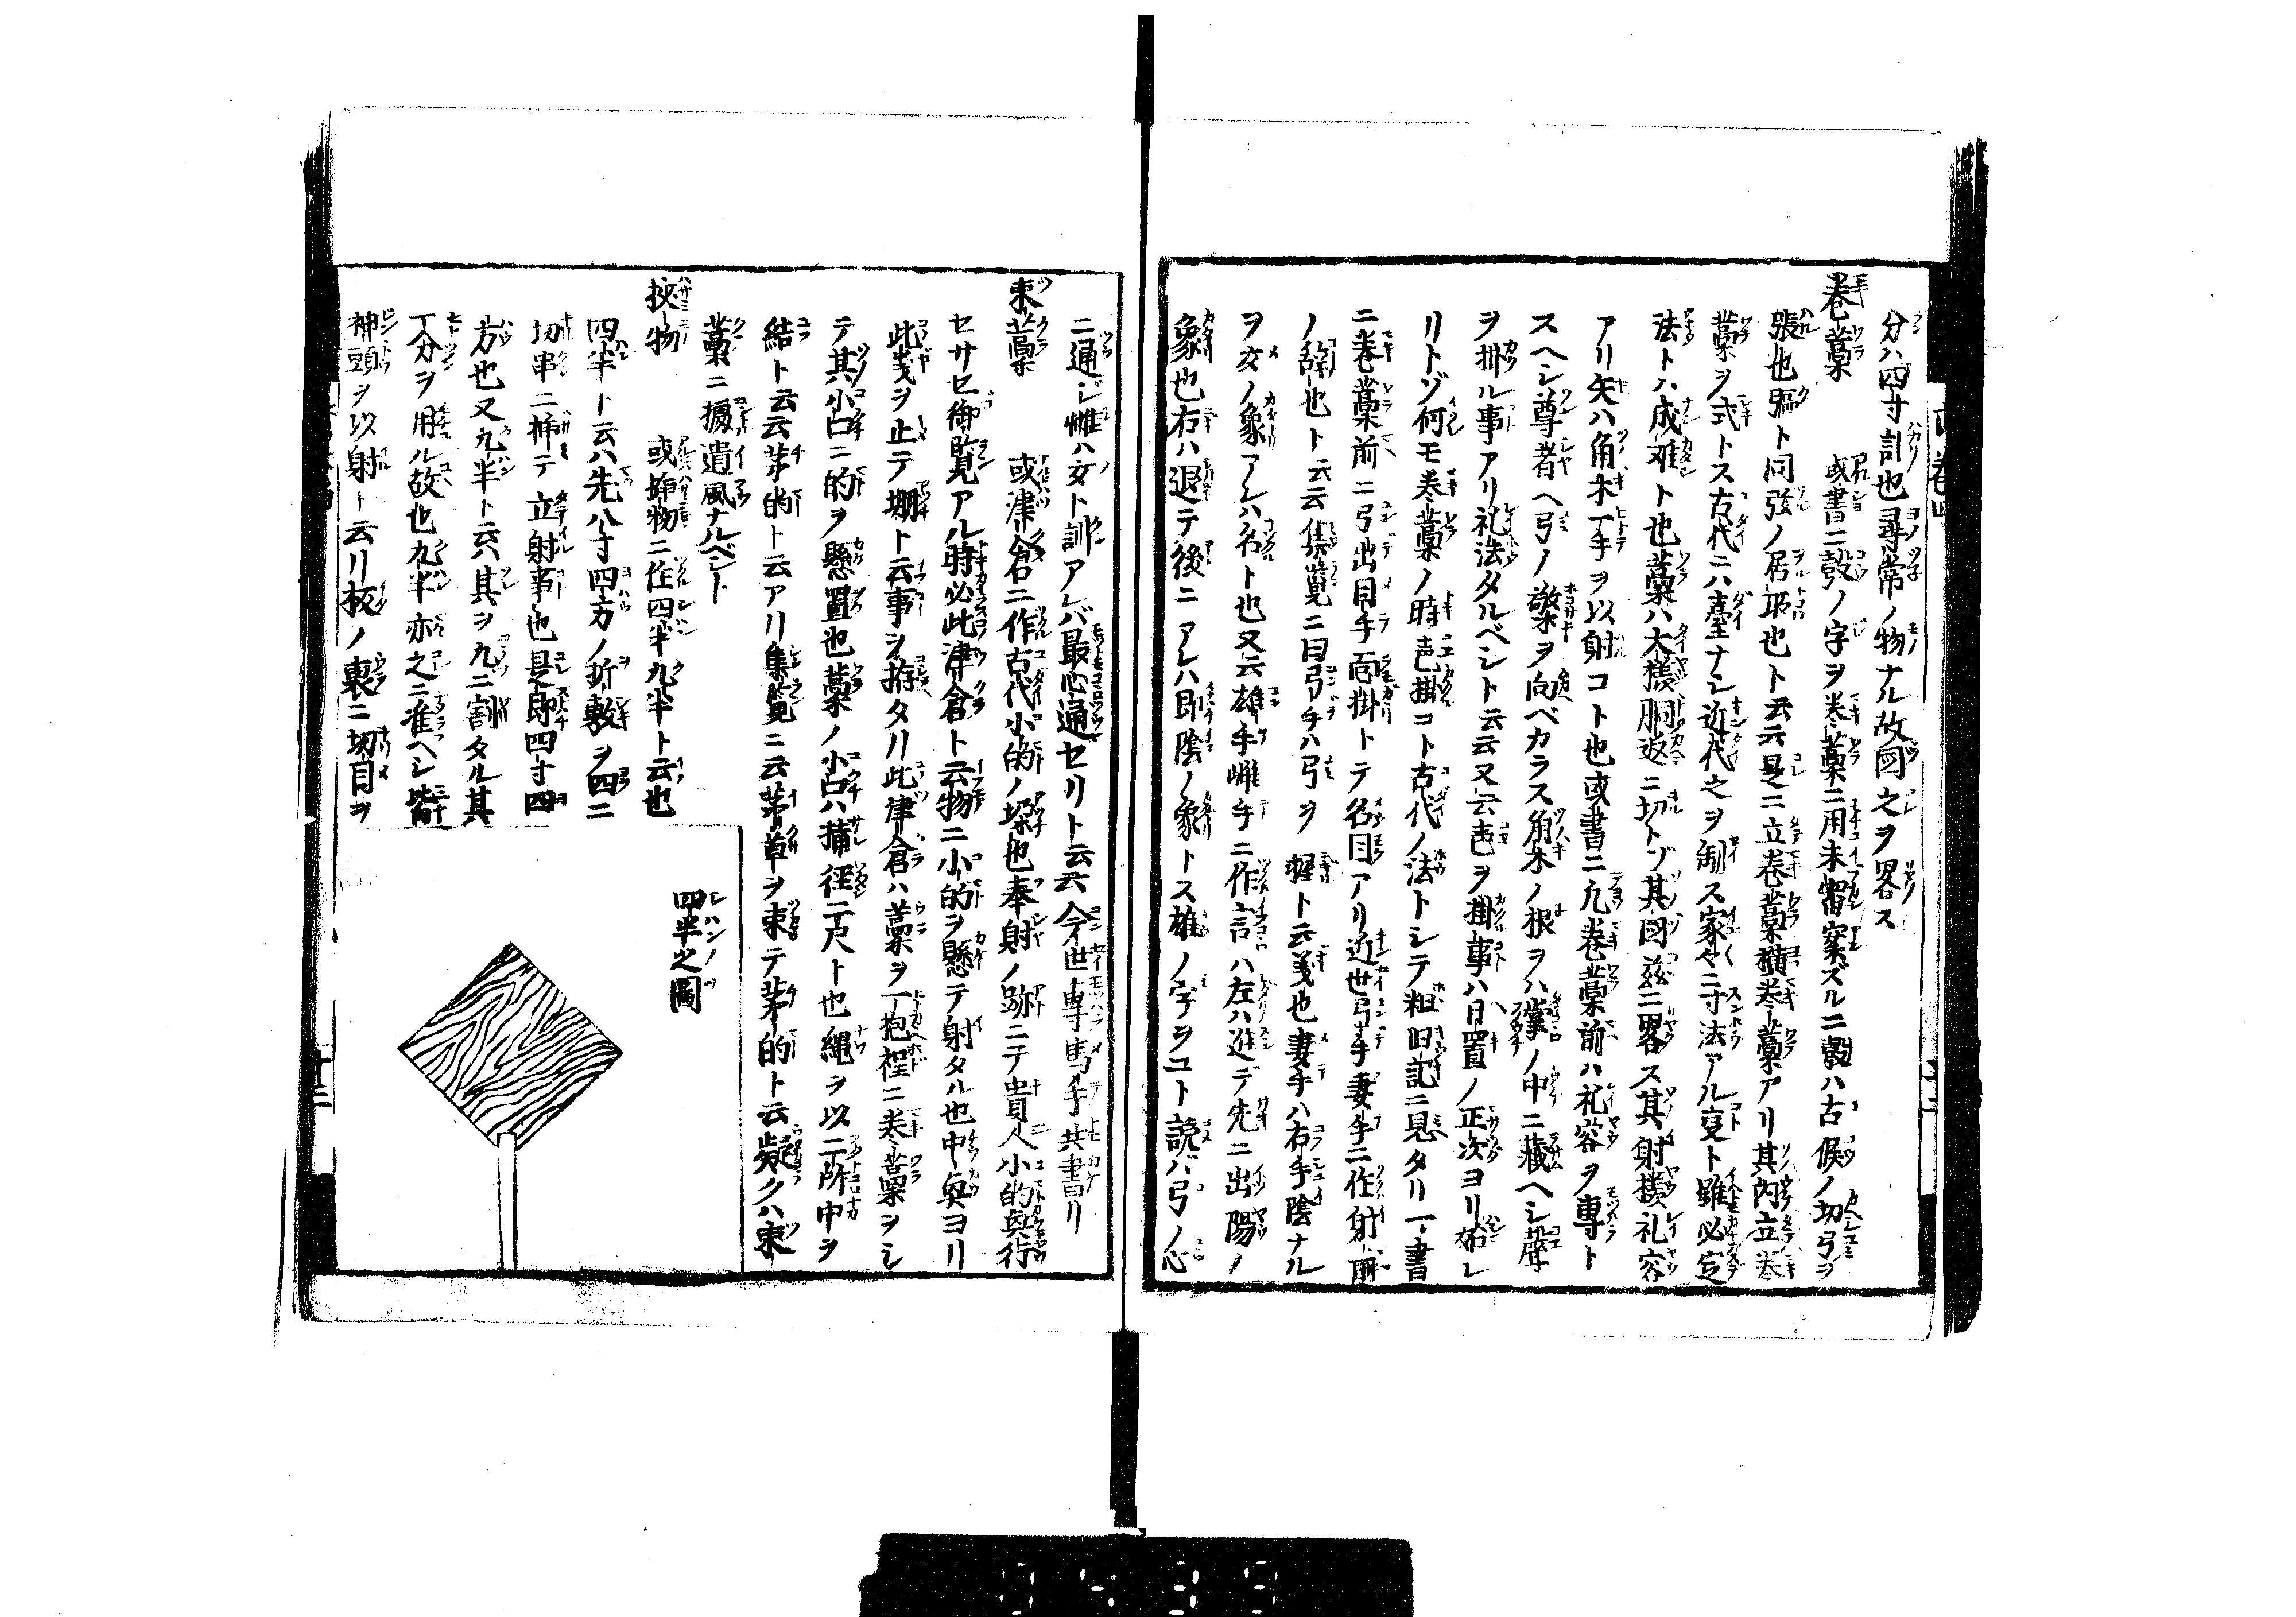 分ハ四寸計也尋常ノ物ナル故図之ヲ畧ス
巻藁　或書ニ彀ノ字ヲ巻藁ニ用未審案ズルニ彀ハ古候ノ切弓ヲ
張也彄ト同弦ノ居所也ト云云是ニ立巻藁横巻藁アリ其内立巻
藁ヲ式トス古代ニハ臺ナシ近代之ヲ制ス家々ニ寸法アル叓ト雖必定
法トハ成难ト也藁ハ大様胴返ニ切トゾ其図茲ニ畧ス其射様礼容
アリ矢ハ角木一手ヲ以射コト也或書ニ凢巻藁前ハ礼容ヲ專ト
スヘシ尊者ヘ弓ノ檠ヲ向ベカラス角木ノ根ヲハ掌ノ中ニ藏ヘシ聲
ヲ掛ル事アリ礼法タルベシト云云又云声ヲ掛事ハ日置ノ正次ヨリ始レ
リトゾ何モ巻藁ノ時声掛コト古代ノ法トシテ粗旧記ニ見タリ一書
ニ巻藁前ニ弓出目手面掛トテ名目アリ近世弓手妻手ニ作射
ノ辞也ト云云集覧ニ曰弓手ハ弓ヲ握ト云義也妻手ハ右手陰ナル
ヲ女ノ象アレハ名ト也又云雄手雌手ニ作言ハ左ハ進デ先ニ出陽ノ
象也右ハ退テ後ニアレハ即陰ノ象トス雄ノ字ヲコト読バ弓ノ心
ニ通ジ雌ハ女ト訓アレバ最心通セリト云云今世專馬手共書リ
束藁　或津倉ニ作古代小的ノ垜也奉射ノ跡ニテ貴人小的興行
セサセ御覧アル時必此津倉ト云物ニ小的ヲ懸テ射タル也中奥ヨリ
此義ヲ止テ堋ト云事ヲ拵タリ此津倉ハ藁ヲ一抱程ニ巻藁ヲシ
テ其小口ニ的ヲ懸置也藁ノ小口ハ捕径二尺ト也縄ヲ以二所中ヲ
結ト云云茅的ト云アリ集覧ニ云茅草ヲ束テ茅的ト云疑クハ束
藁ニ擬遺風ナルベシト
挾物　或挿物ニ作四半九半ト云也
四半ト云ハ先八寸四方ノ折敷ヲ四ニ
切串ニ挿テ立射事也是即四寸四
方也又九半ト云ハ其ヲ九ニ割タル其
一分ヲ用ル故也九半亦之ニ准ヘシ皆
神頭ヲ以射ト云リ板ノ裏ニ切目ヲ
四半之圖